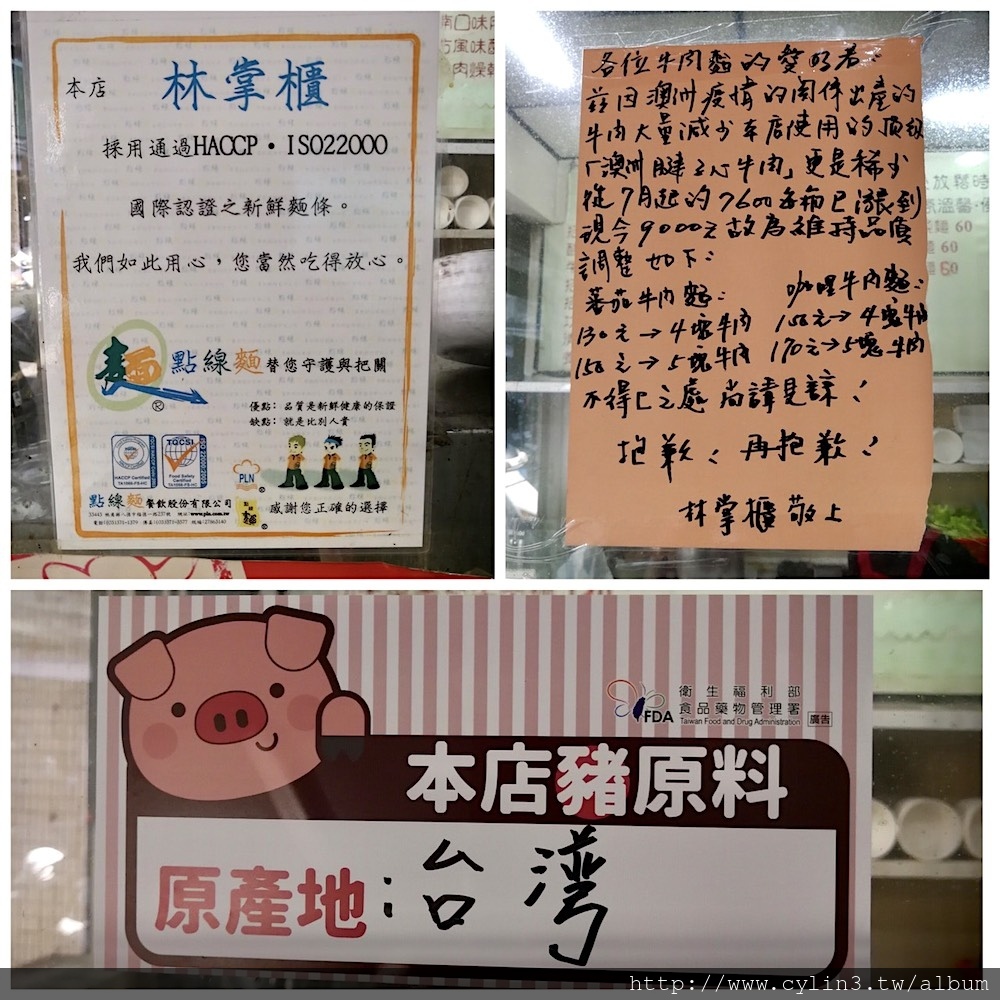 本店 林掌櫃
採用通過HACCP・ISO22000
國際認證之新鮮麵條。
我們如此用心，您當然吃得放心。
麵
點線麵 替您守護與把關
優點：品質是新鮮健康的保證
缺點：就是比別人貴
HACCP Certified
TQCSI
Food Safety Certified
PLN
點線麵餐飲股份有限公司
感謝您正確的選擇
各位牛肉麵的愛好者：
茲因澳洲疫情的関係出產的
牛肉大量減少本店使用的頂級
「澳洲腱子心牛肉」更是稀少
從7月起的7600多元已漲到
現今9000元故為維持品質
調整如下：
蕃茄牛肉麵：
130元→4塊牛肉
150元→5塊牛肉
咖哩牛肉麵：
150元→4塊牛肉
170元→5塊牛肉
不得已之處尚請見諒！
抱歉！再抱歉！
林掌櫃敬上
60
60
FDA
衛生福利部
食品藥物管理署
Taiwan Food and Drug Administration
廣告
本店豬原料
原產地：台灣
http://www.cylin3.tw/album